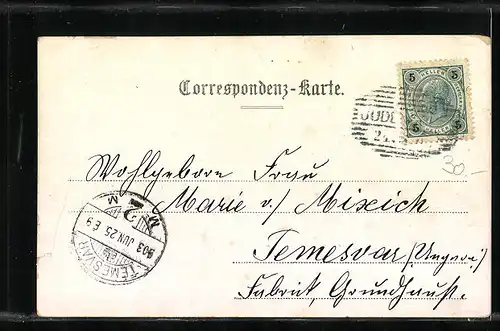 Correspondenz-Karte.
5 HELLER 5
5 5
JUDE
24.
30.-
Wohlgeborne Frau
Marie v./ Mixich
Temesvar (Ungarn)
Fabrik, Grundhaus.
M M
TEMESVÁR
903 JUN 25 E 9